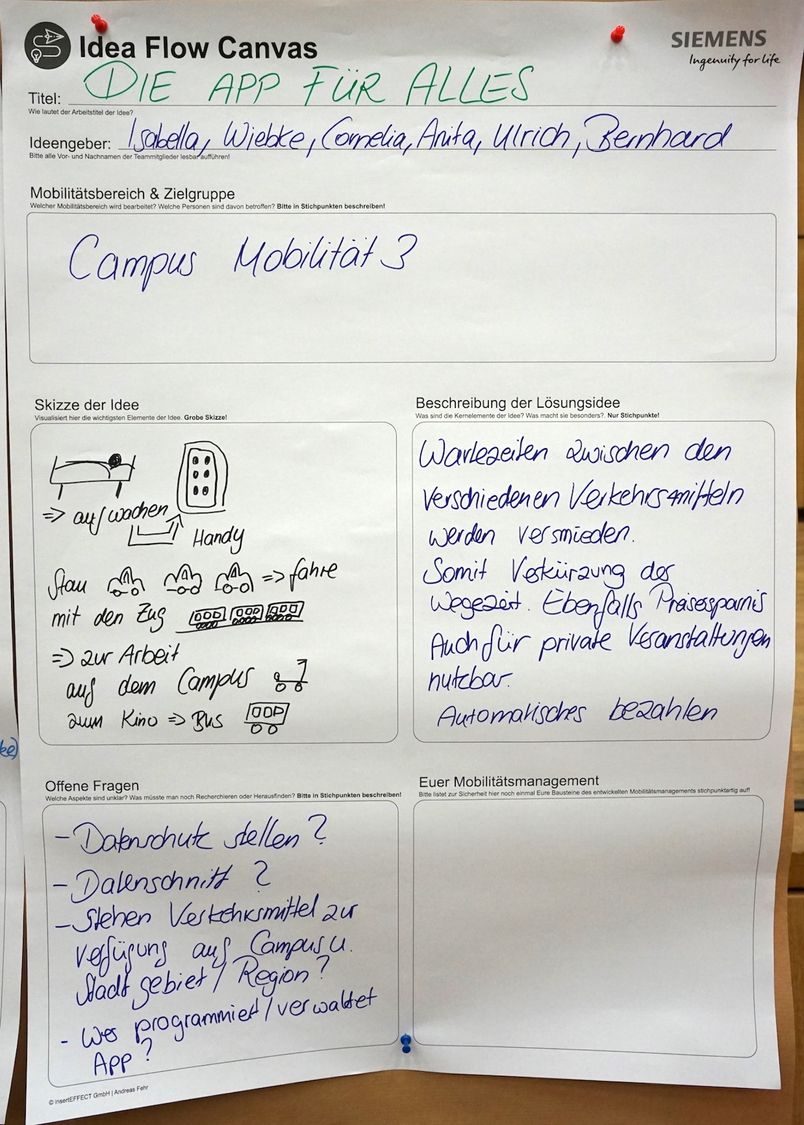 Idea Flow Canvas
SIEMENS
Ingenuity for life
Titel: DIE APP FÜR ALLES
Wie lautet der Arbeitstitel der Idee?
Ideengeber: Isabella, Wiebke, Cornelia, Anita, Ulrich, Bernhard
Bitte alle Vor- und Nachnamen der Teammitglieder lesbar aufführen!
Mobilitätsbereich & Zielgruppe
Welcher Mobilitätsbereich wird bearbeitet? Welche Personen sind davon betroffen? Bitte in Stichpunkten beschreiben!
Campus Mobilität 3
Skizze der Idee
Visualisiert hier die wichtigsten Elemente der Idee. Grobe Skizze!
⇒ aufwachen
Handy
Stau ⇒ fahre
mit den Zug
⇒ zur Arbeit
auf dem Campus
zum Kino ⇒ Bus
Beschreibung der Lösungsidee
Was sind die Kernelemente der Idee? Was macht sie besonders?. Nur Stichpunkte!
Wartezeiten zwischen den
verschiedenen Verkehrsmitteln
werden vermieden.
Somit Verkürzung der
Wegezeit. Ebenfalls Preisersparnis
Auch für private Veranstaltungen
nutzbar.
Automatisches bezahlen
Offene Fragen
Welche Aspekte sind unklar? Was müsste man noch Recherchieren oder Herausfinden? Bitte in Stichpunkten beschreiben!
- Datenschutz stellen?
- Datenschnitt?
- Stehen Verkehrsmittel zur
Verfügung auf Campus u.
Stadtgebiet / Region?
- Wer programmiert / verwaltet
App?
Euer Mobilitätsmanagement
Bitte listet zur Sicherheit hier noch einmal Eure Bausteine des entwickelten Mobilitätsmanagements stichpunktartig auf!
© insertEFFECT GmbH | Andreas Fehr